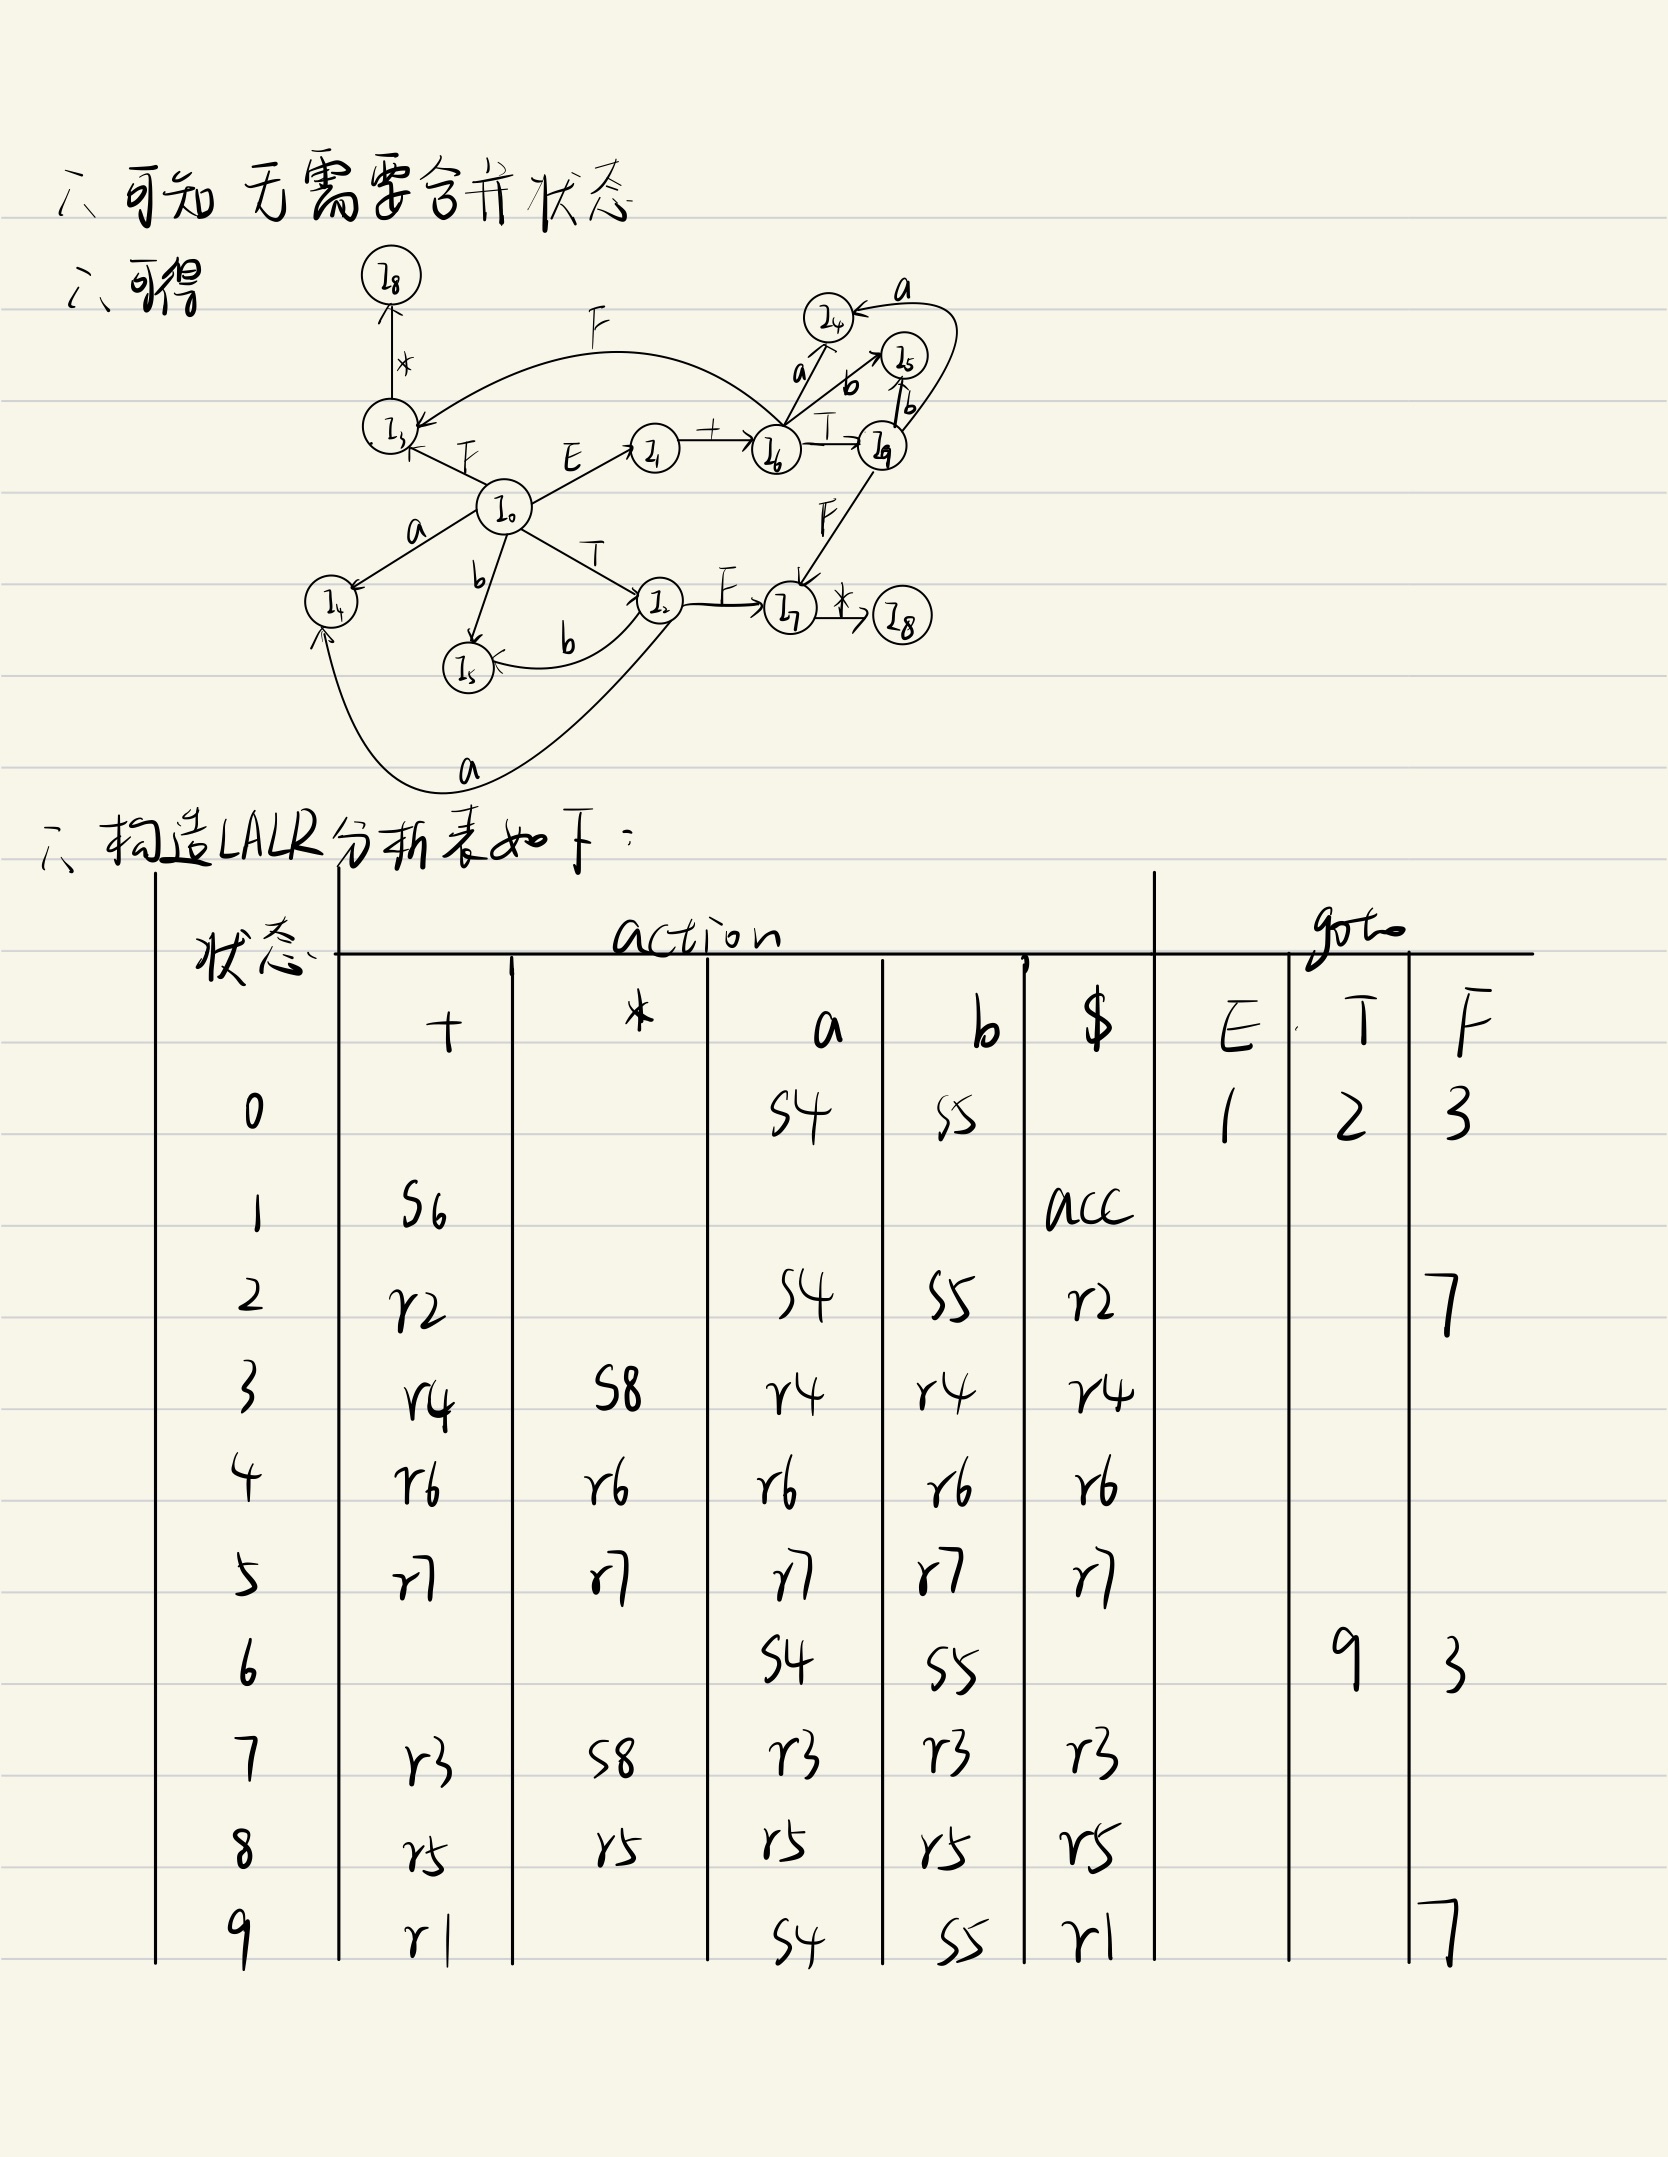 ∴ 可知 无需要合并状态
∴ 可得
I8
a
I4
F
*
I5
a
b
b
I3
F
E
I1
+
I6
T
I9
I0
a
T
F
b
I4
I2
F
I7
*
I8
b
I5
a
∴ 构造LALR分析表如下:
状态 action goto
+ * a b $ E T F
0 S4 S5 1 2 3
1 S6 acc
2 r2 S4 S5 r2 7
3 r4 S8 r4 r4 r4
4 r6 r6 r6 r6 r6
5 r7 r7 r7 r7 r7
6 S4 S5 9 3
7 r3 S8 r3 r3 r3
8 r5 r5 r5 r5 r5
9 r1 S4 S5 r1 7